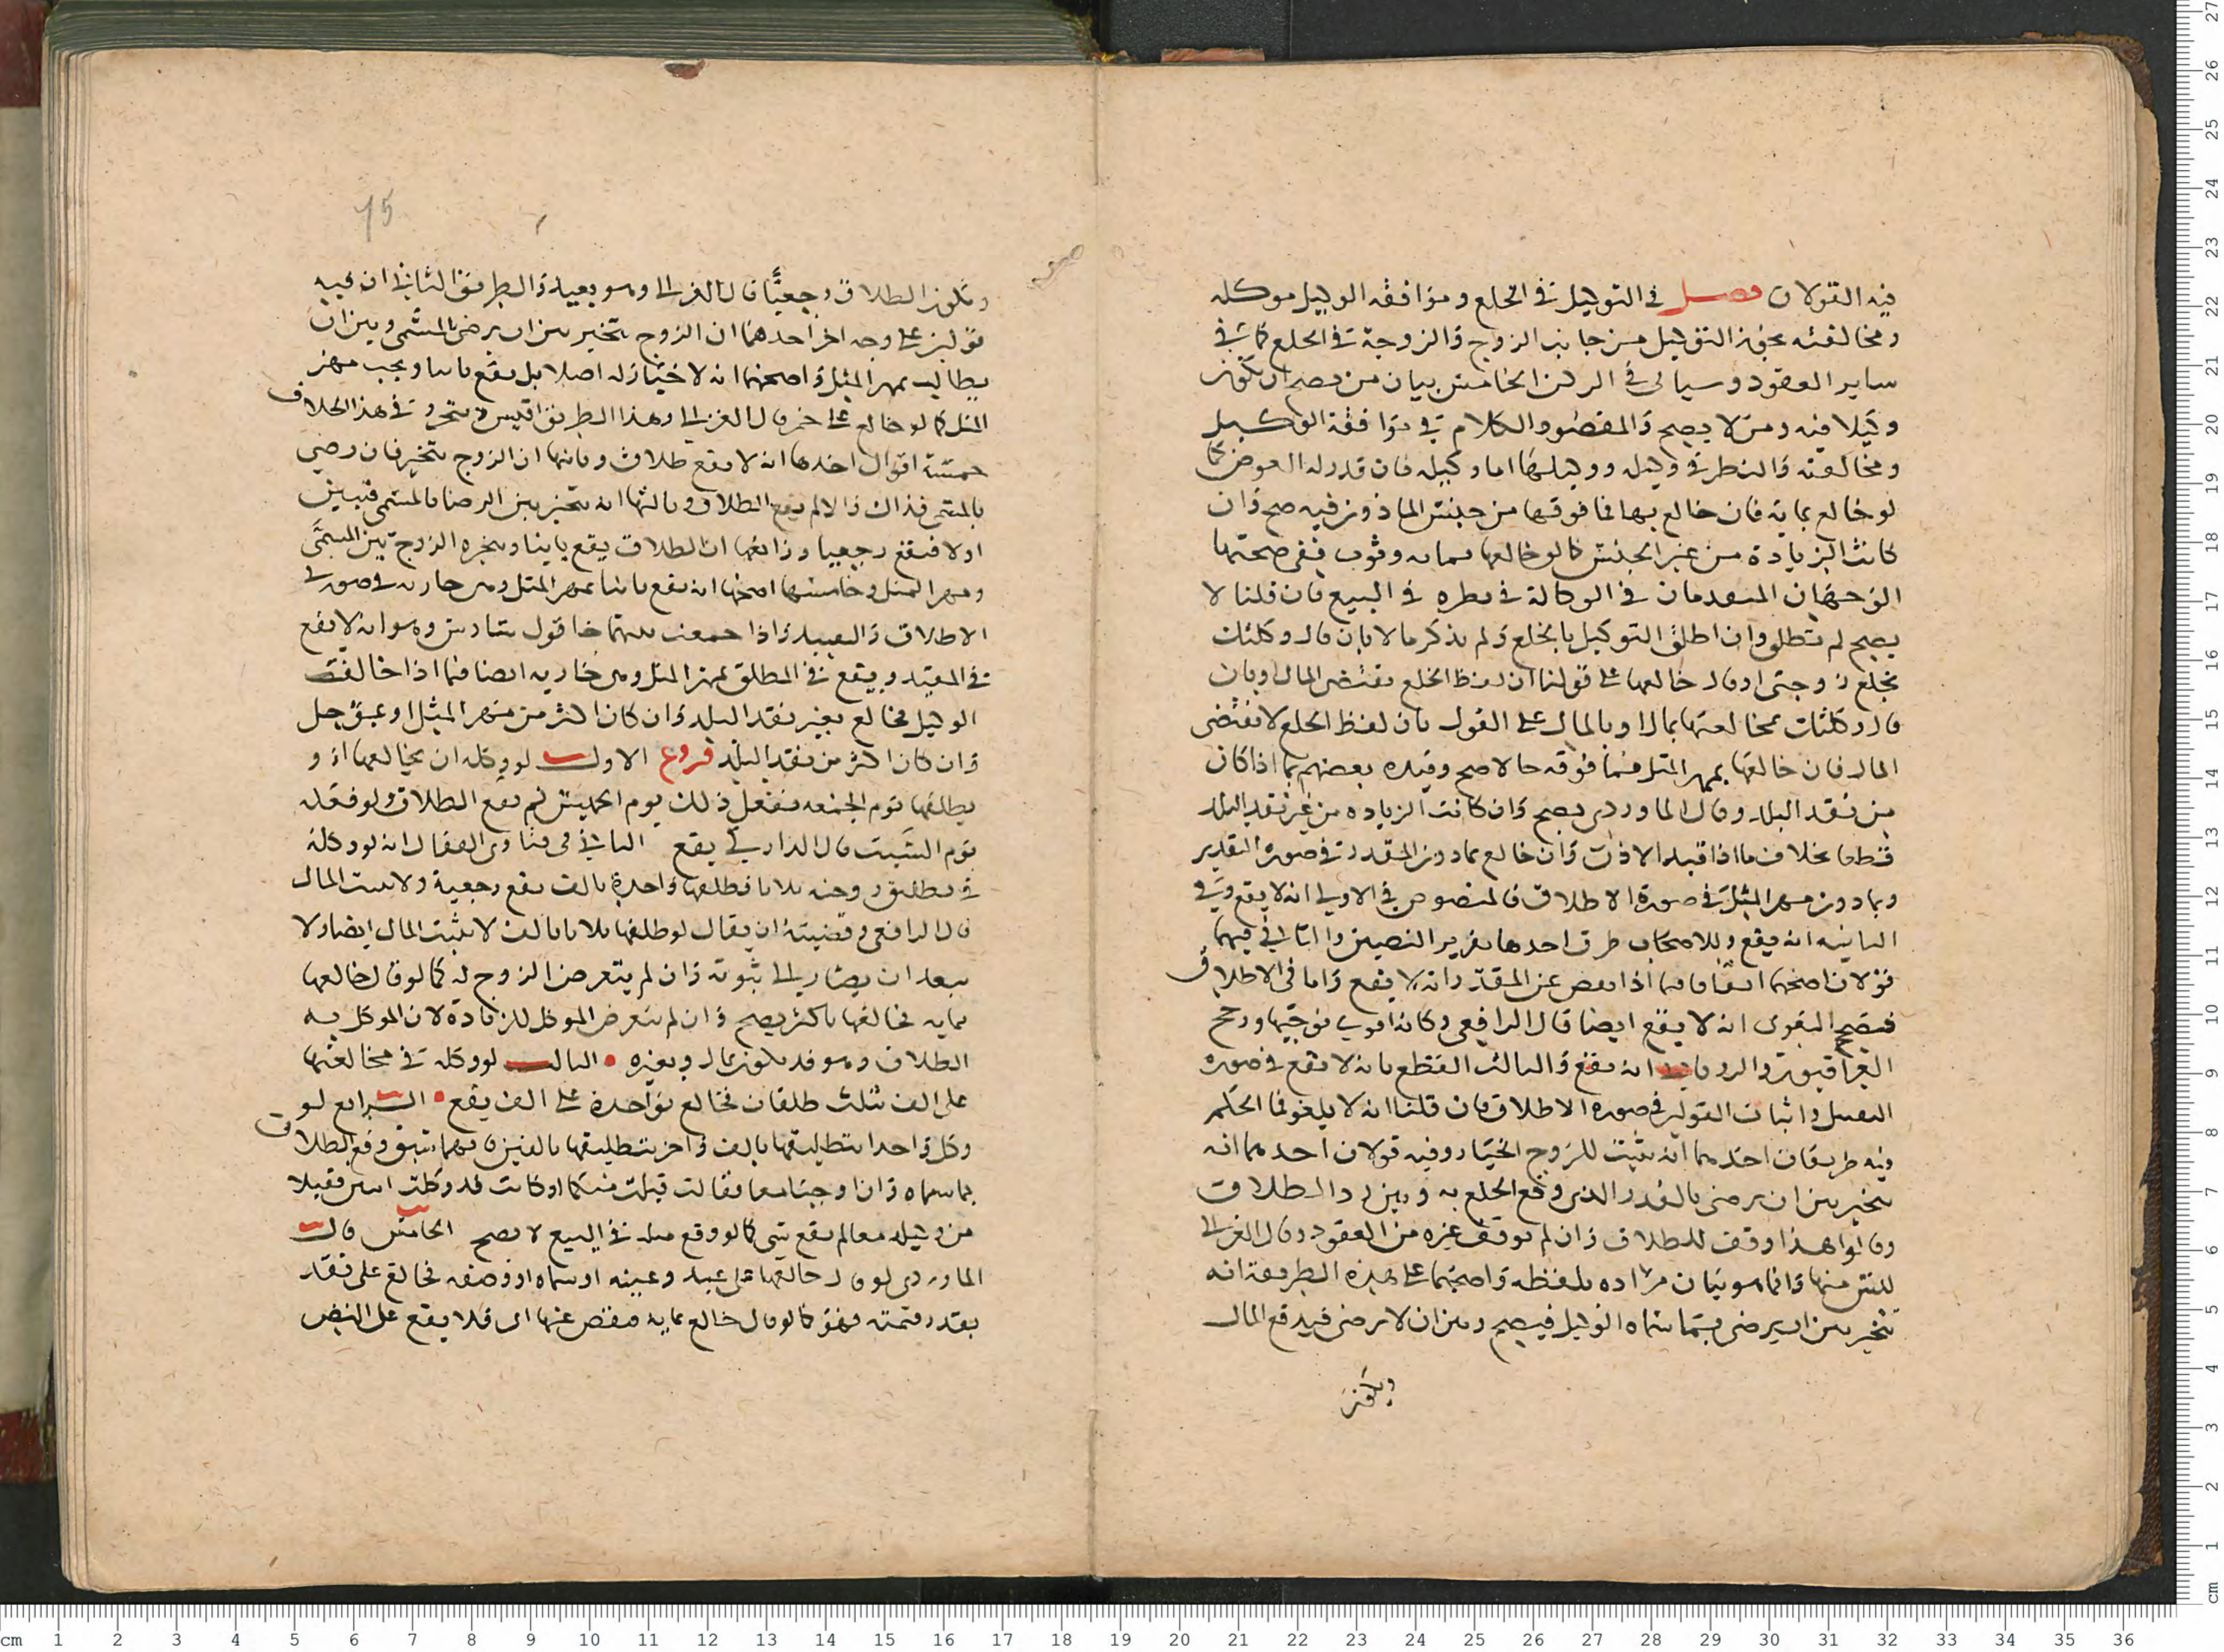 فيه القولان فصل في التوكيل في الخلع وموافقة الوكيل موكله
ومخالفته يجوز التوكيل من جانب الزوج والزوجة في الخلع كما في
ساير العقود وسياتي في الركن الخامس بيان من يصح ان يكون
وكيلا فيه ومن لا يصح والمقصود الكلام في موافقة الوكيل
ومخالفته والنظر في وكيله ووكيلها اما وكيله فان قدر له العوض كما
لو خالع بماية فان خالع بها فما فوقها من جنس الماذون فيه صح وان
كانت الزيادة من غير الجنس كما لو خالعها بمايه وثوب ففي صحتها
الوجهان المتقدمان في الوكالة في نظره في البيع فان قلنا لا
يصح لم تطلق وان اطلق التوكيل بالخلع ولم يذكر مالا بان قال وكلتك
بخلع زوجتي او قال خالعها على قولنا ان لفظ الخلع يقتضي المال او بان
قال وكلتك بمخالعتها بمال او بالمال على القول بان لفظ الخلع لا يقتضي
المال فان خالعها بمهر المثل فما فوقه حالا صح وقيده بعضهم بما اذا كان
من نقد البلد وقال الماوردي يصح وان كانت الزياده من غير نقد البلد
قطعا بخلاف ما اذا قيد الاذن وان خالع بما دون المقدر في صورة التقدير
وبما دون مهر المثل في صورة الاطلاق فالمنصوص في الاولى انه لا يقع وفي
الثانيه انه يقع وللاصحاب طرق احدها تقرير النصين والثاني فيهما
قولان اصحهما اتفاقا فيما اذا نقص عن المقدر انه لا يقع واما في الاطلاق
فصحح البغوي انه لا يقع ايضا قال الرافعي وكانه اقوى توجيها ورجح
العراقيون والروياني انه يقع والثالث القطع بانه لا يقع في صوره
التقييد واثبات القولين في صوره الاطلاق فان قلنا انه لا يلغو فما الحكم
فيه طريقان احدهما انه يثبت للزوج الخيار وفيه قولان احدهما انه
يتخير بين ان يرضى بالقدر الذي وقع الخلع به وبين رد الطلاق
وقالوا هذا وقف للطلاق وان لم توقف غيره من العقود وقال الغزالي
ليس منها وانما هو بيان مراده بلفظه واصحهما على هذه الطريقة انه
يتخير بين ان يرضى بما سماه الوكيل فيصح وبين ان لا يرضى فيدفع المال
ويكون
75
ويكون الطلاق رجعيًّا قال الغزالي وهو بعيد والطريق الثاني ان فيه
قولين على وجه اخر احدهما ان الزوج يتخير بين ان يرضى بالمسمى وبين ان
يطالب بمهر المثل واصحهما انه لا خيار له اصلا بل يقع باينا ويجب مهر
المثل كما لو خالع على خمر قال الغزالي وهذا الطريق اقيس ويتحرر في هذا الخلاف
خمسة اقوال احدها انه لا يقع طلاق وثانيها ان الزوج يتخير فان رضي
بالمسمى فذاك والا لم يقع الطلاق وثالثها انه يتخير بين الرضا بالمسمى فتبين
اولا فيقع رجعيا ورابعها ان الطلاق يقع باينا ويتخير الزوج بين المسمَّى
ومهر المثل وخامسها اصحها انه يقع باينا بمهر المثل وهي جاريه في صورتي
الاطلاق والتقييد واذا جمعت بينهما جا قول سادس وهو انه لا يقع
في المقيد ويقع في المطلق بمهر المثل وهي جاريه ايضا فيما اذا خالفت
الوكيل فخالع بغير نقد البلد وان كان اكثر من مهر المثل او بمؤجل
وان كان اكثر من نقد البلد فروع الاول لو وكله ان يخالعها او
يطلقها يوم الجمعه ففعل ذلك يوم الخميس لم يقع الطلاق ولو فعله
يوم السبت قال الداركي يقع الثاني في فتاوى القفال انه لو وكله
في تطليق زوجته ثلاثا فطلقها واحدة بالف يقع رجعية ولا يثبت المال
قال الرافعي وقضيته ان يقال لو طلقها ثلاثا بالف لا يثبت المال ايضا ولا
يبعد ان يصار الى ثبوته وان لم يتعرض الزوج له كما لو قال خالعها
بمايه فخالعها باكثر يصح وان لم يتعرض الموكل للزيادة لان الموكل به
الطلاق وهو قد يكون بمال وبغيره • الثالث لو وكله في مخالعتها
على الف بثلاث طلقات فخالع بواحدة على الف يقع • الرابع لو
وكل واحدا بتطليقها بالف واخر بتطليقها بالفين فايهما سبق وقع الطلاق
بما سماه وان اوجبا معا فقالت قبلت منكما او كانت قد وكلت اثنين فقبلا
من وكيليه معا لم يقع شي كما لو وقع مثله في البيع لا يصح الخامس قال
الماوردي لو قال خالعها على عبد وعينه او سماه او وصفه فخالع على نقد
بقدر قيمته فهو كما لو قال خالع بمايه فنقص عنها اي فلا يقع على النص